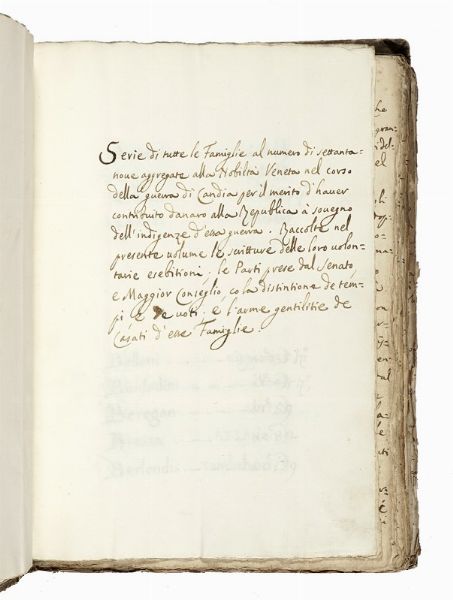 Serie di tutte le Famiglie al numero di settanta-
noue aggregate alla Nobiltà Veneta nel corso
della guerra di Candia per il merito d'hauer
contributo danaro alla Republica à souegno
dell'indigenze d'essa guerra. Raccolte nel
presente volume le scritture delle loro uolon-
tarie esebitioni. le Parti prese dal Senato
e Maggior Conseglio, co la distintione de tem-
pi e de uoti. e l'arme gentilitie de
Casati d'esse Famiglie.